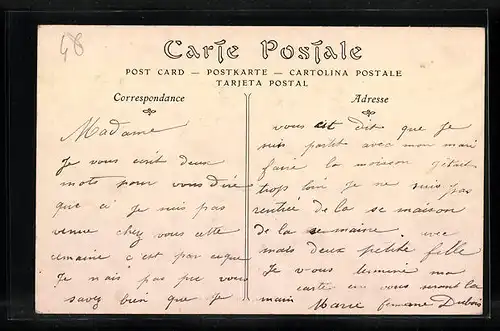 48
Carte Postale
POST CARD — POSTKARTE — CARTOLINA POSTALE
TARJETA POSTAL
Correspondance
Adresse
Madame
Je vous écrit deux
mots pour vous diré
que ci Je suis pas
venue chez vous cette
semaine c'est par ceque
Je n'ais pas peu vous
savez bien que Je
vous ait dit que Je
suis partit avec mon mari
faire la moison J'était
trop loin Je ne suis pas
rentrée de la se maison
de la se maine avec
mais deux petite fille
Je vous termine ma
carte en vous seront la
main Marie femme Dubois